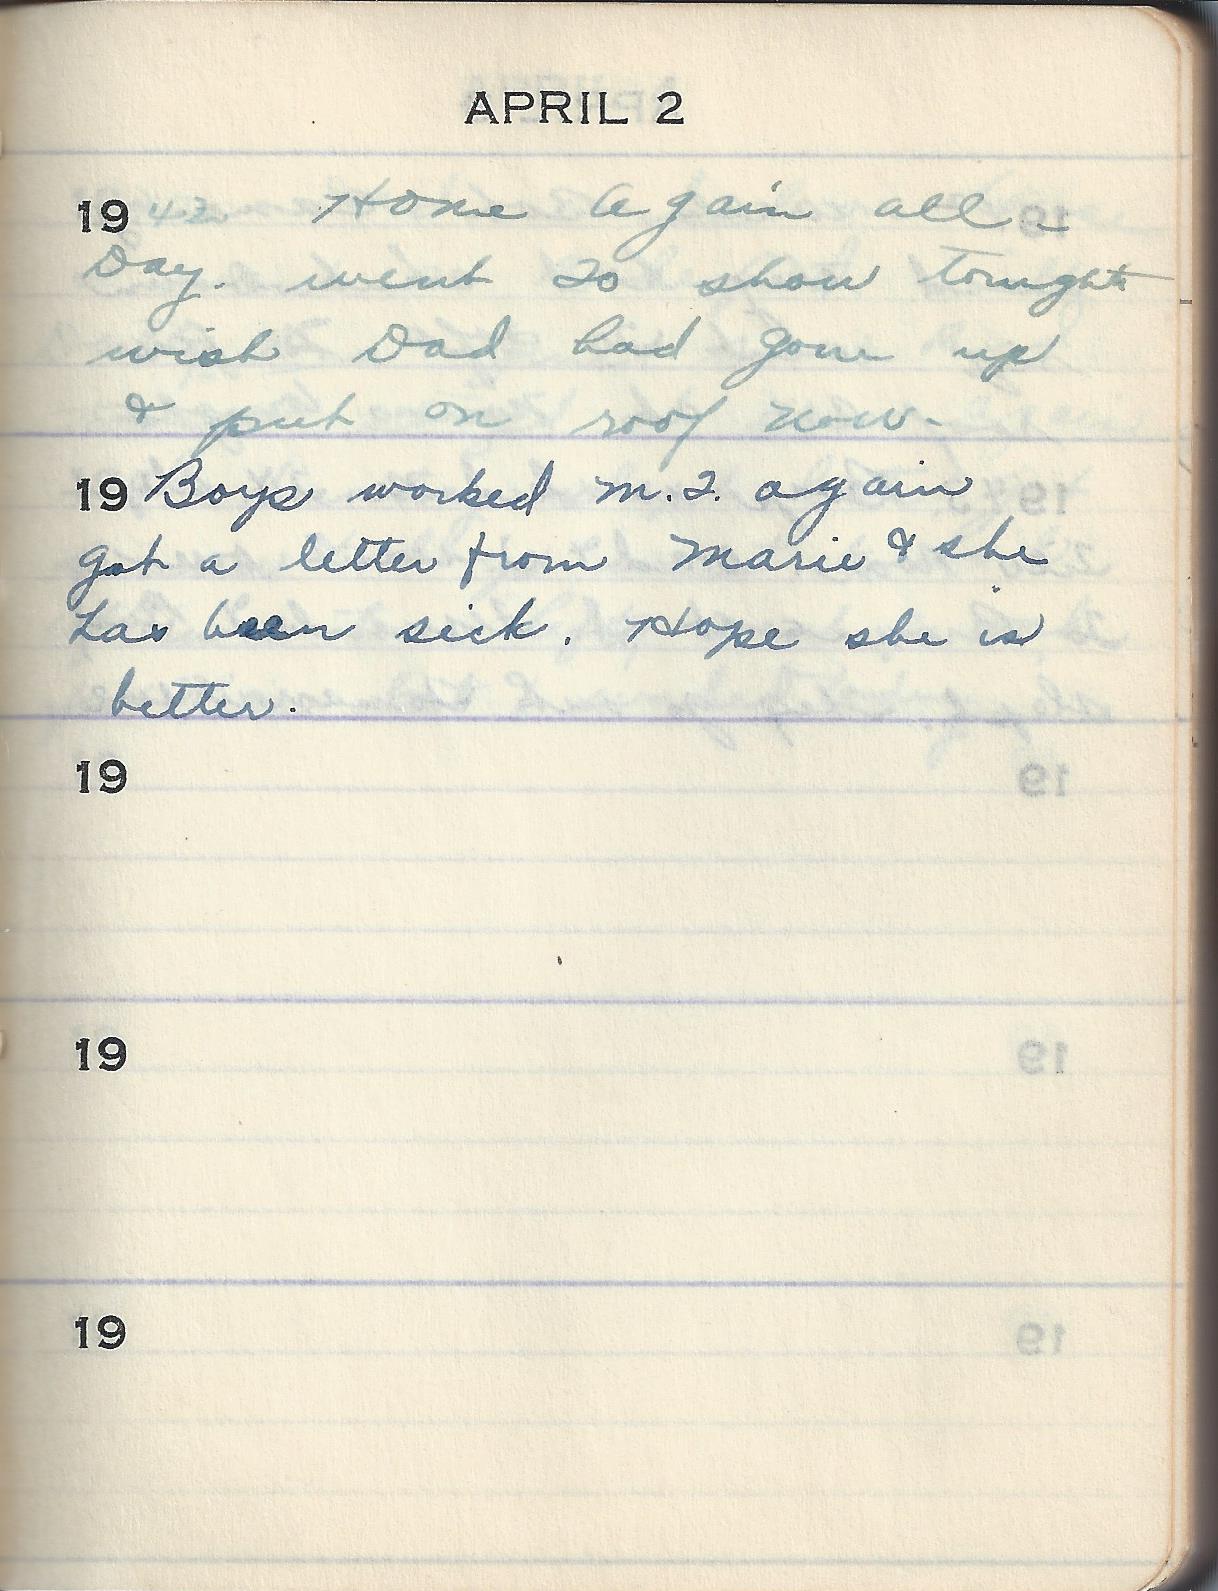 APRIL 2
19 42 Home again all
Day. went to show tonight
wish Dad had gone up
& put on roof now.
19 Boys worked M.2. again
got a letter from Marie & she
has been sick. Hope she is
better.
19
19
19